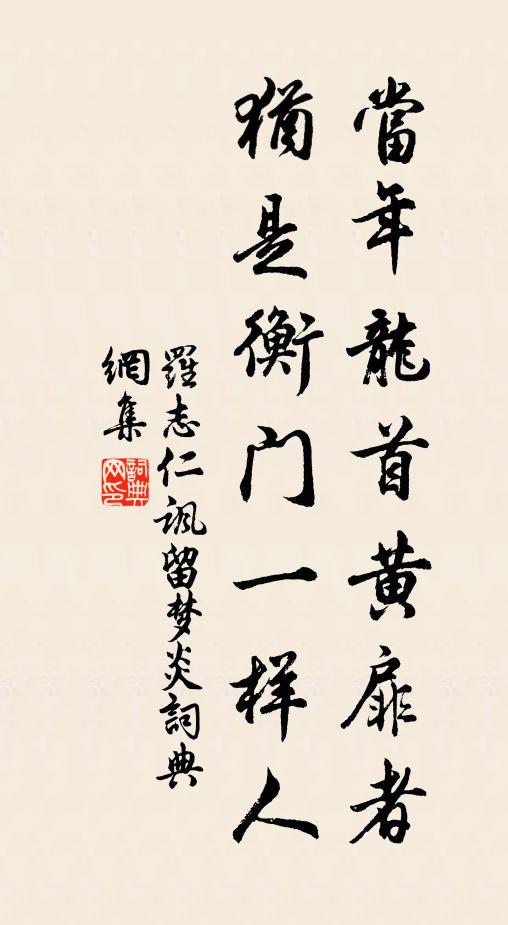 當年龍首黄扉者
猶是衡门一样人
羅志仁諷留梦炎詞典
網集
詞典
网印